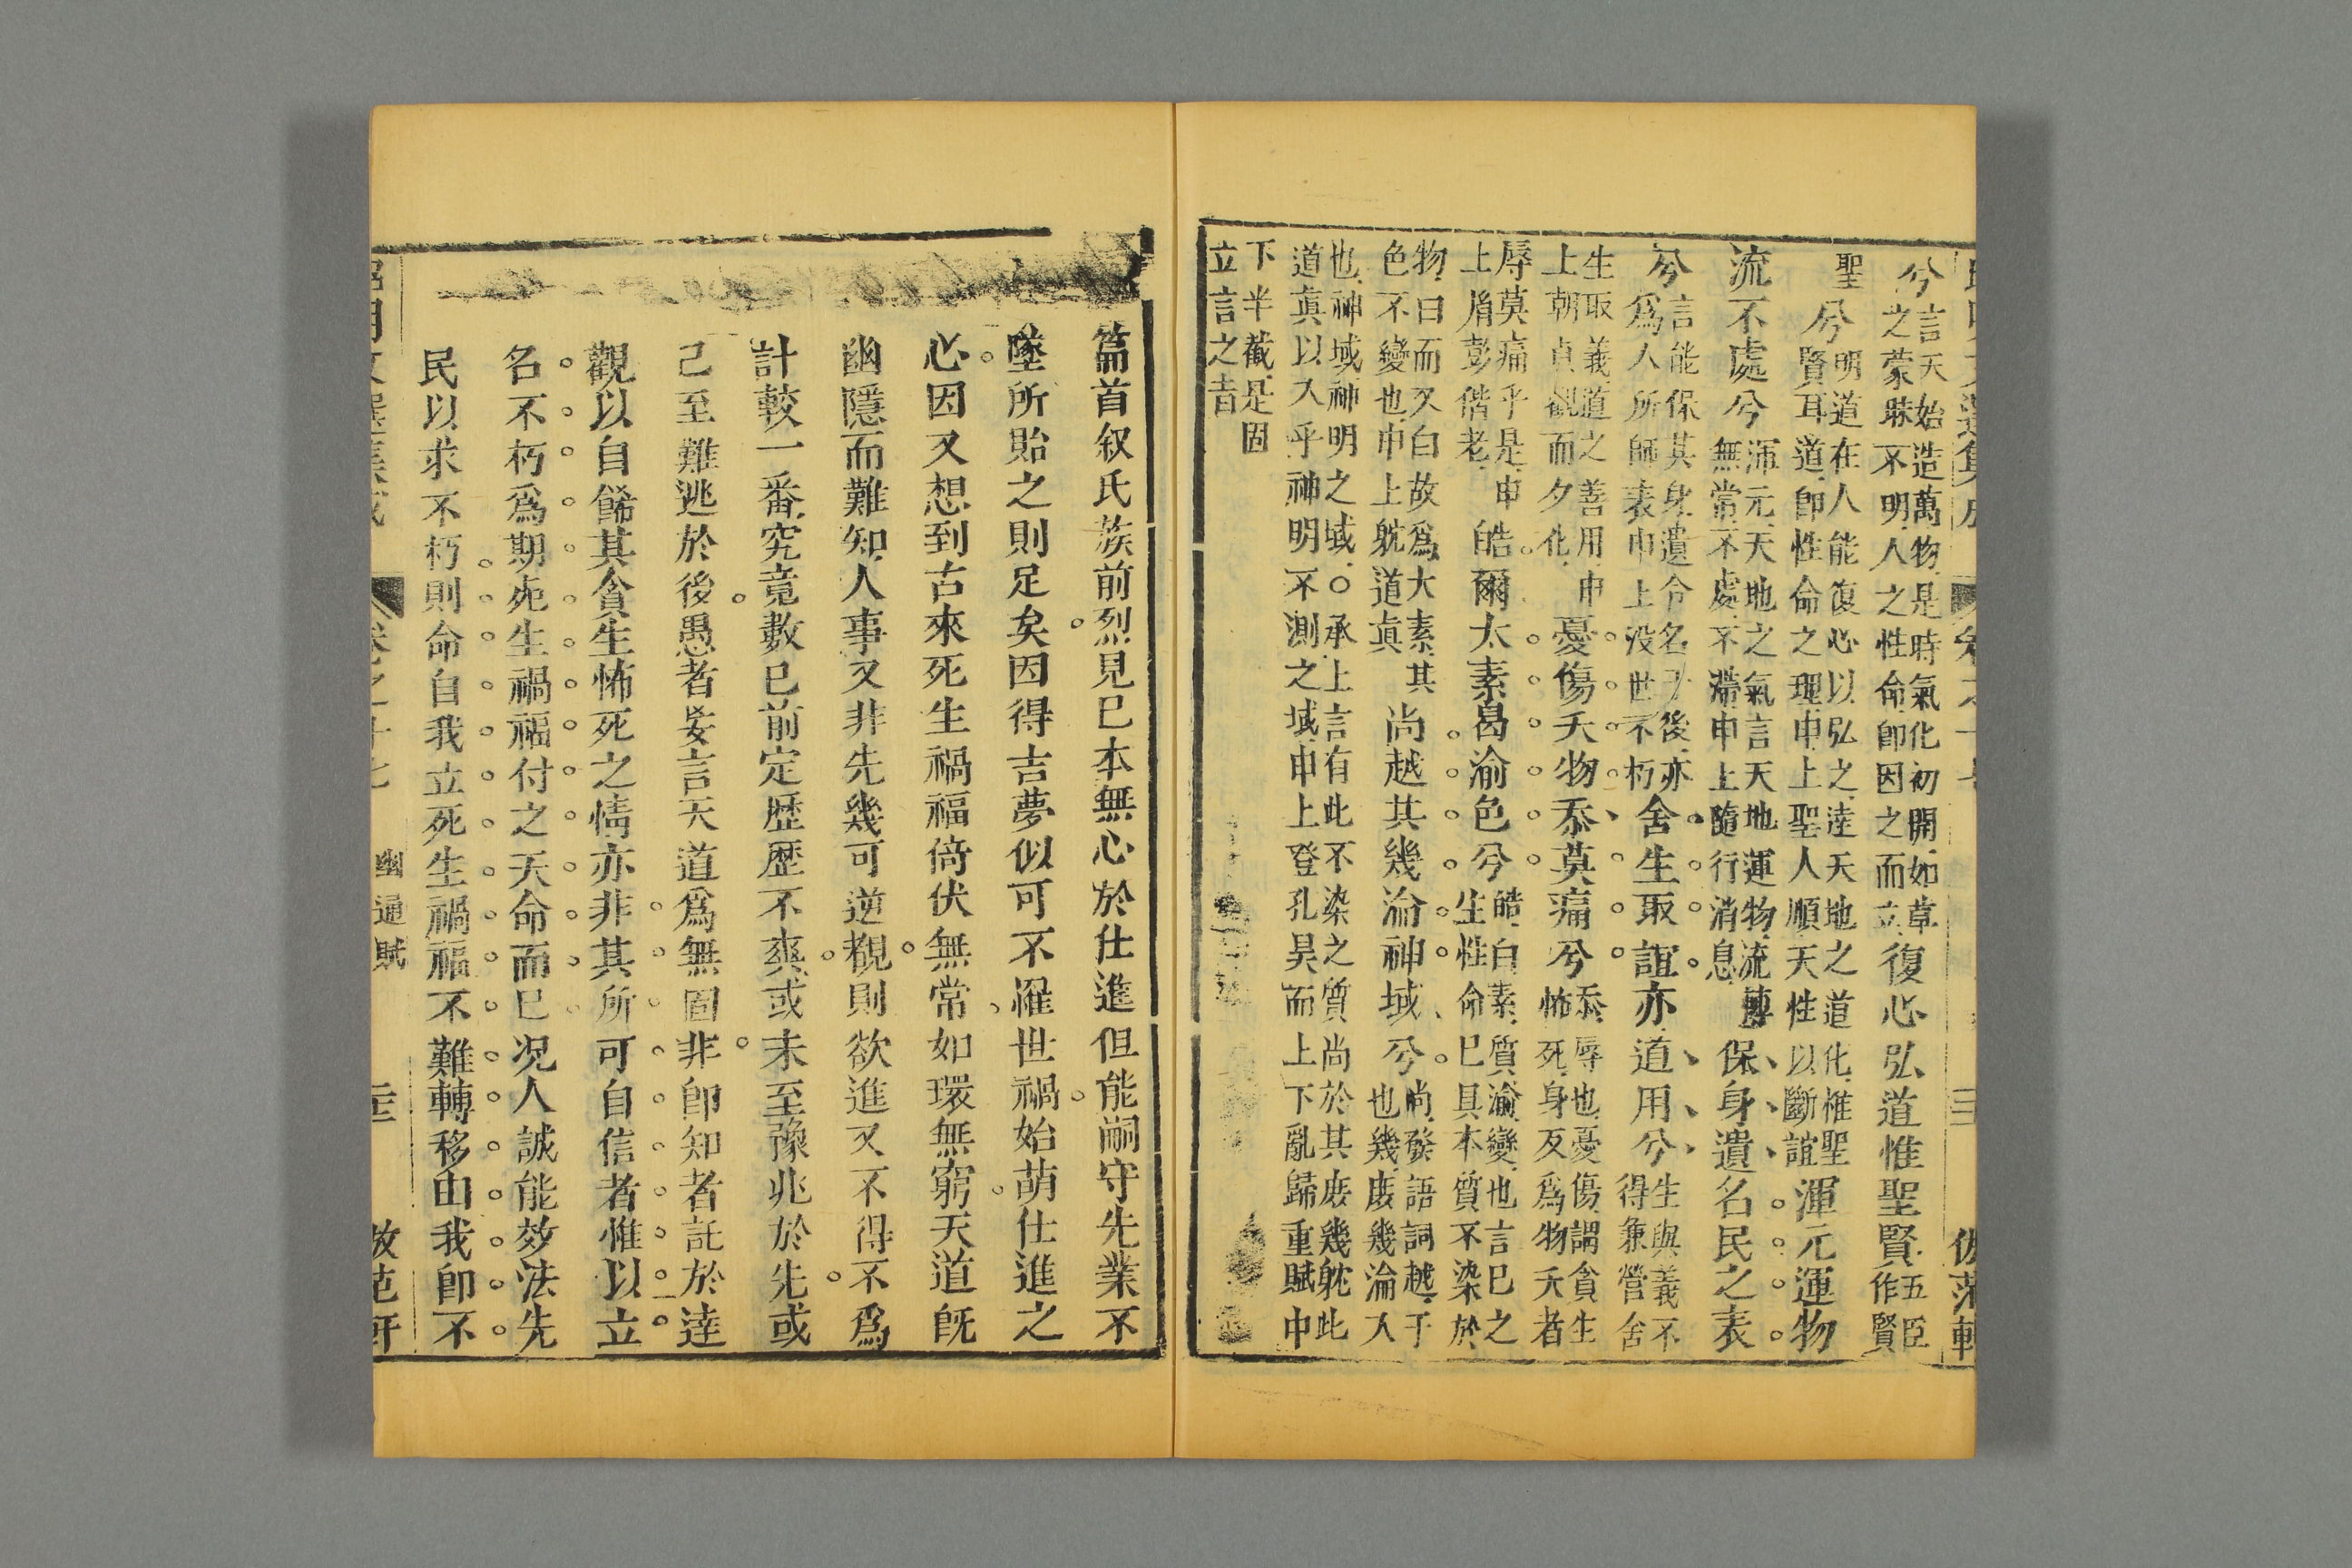 兮言天始造萬物是時氣化初開如草之蒙昧不明人之性命卽因之而立復心弘道惟聖賢五臣作賢
聖兮明道在人能復心以弘之達天地之道化惟聖賢耳道卽性命之理申上聖人順天性以斷誼渾元運物
流不處兮渾元天地之氣言天地運物流轉無常不處不滯申上隨行消息保身遺名民之表
兮言能保其身遺令名于後亦爲人所師表申上没世不朽舍生取誼亦道用兮生與義不得兼營舍
生取義道之善用申上朝貞觀而夕化憂傷夭物忝莫痛兮忝辱也憂傷謂貪生怖死身反爲物夭者
辱莫痛乎是申上胥彭偕老皓爾太素曷渝色兮皓白素質渝變也言已之生性命已具本質不染於
物曰而又白故爲大素其色不變也申上躭道眞尚越其幾淪神域兮尚發語詞越于也幾庶幾淪入
也神域神明之域○承上言有此不染之質尚於其庶幾躭此道眞以入乎神明不測之域申上登孔昊而上下亂歸重賦中
下半截是固立言之旨
篇首叙氏族前烈見已本無心於仕進但能嗣守先業不
墜所貽之則足矣因得吉夢似可不罹世禍始萌仕進之
心因又想到古來死生禍福倚伏無常如環無窮天道旣
幽隱而難知人事又非先幾可逆覩則欲進又不得不爲
計較一番究竟數已前定歷歷不爽或未至豫兆於先或
己至難逃於後愚者妄言天道爲無固非卽知者託於達
觀以自餙其貪生怖死之情亦非其所可自信者惟以立
名不朽爲期死生禍福付之天命而已况人誠能效法先
民以求不朽則命自我立死生禍福不難轉移由我卽不
卷之十七 幽通賦